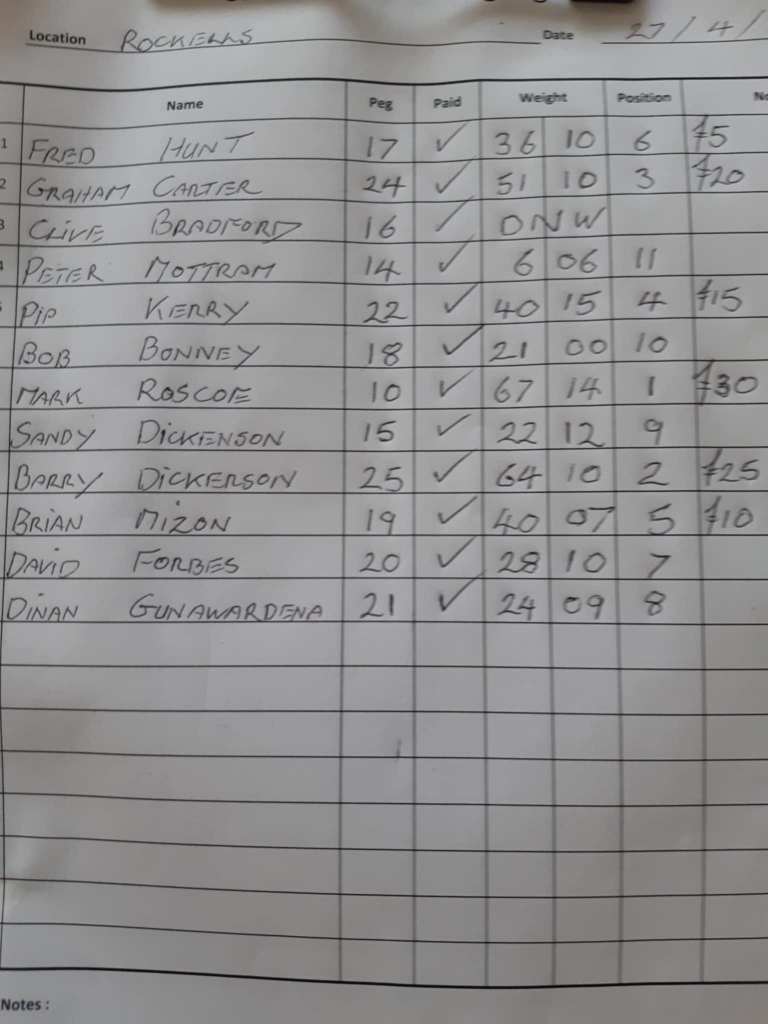 Location ROCKELLS Date 27/4/
Name Peg Paid Weight Position
1 FRED HUNT 17 ✓ 36 10 6 £5
2 GRAHAM CARTER 24 ✓ 51 10 3 £20
3 CLIVE BRADFORD 16 ✓ DNW
4 PETER MOTTRAM 14 ✓ 6 06 11
5 PIP KERRY 22 ✓ 40 15 4 £15
BOB BONNEY 18 ✓ 21 00 10
MARK ROSCOE 10 ✓ 67 14 1 £30
SANDY DICKENSON 15 ✓ 22 12 9
BARRY DICKERSON 25 ✓ 64 10 2 £25
BRIAN MIZON 19 ✓ 40 07 5 £10
DAVID FORBES 20 ✓ 28 10 7
DINAN GUNAWARDENA 21 ✓ 24 09 8
Notes :